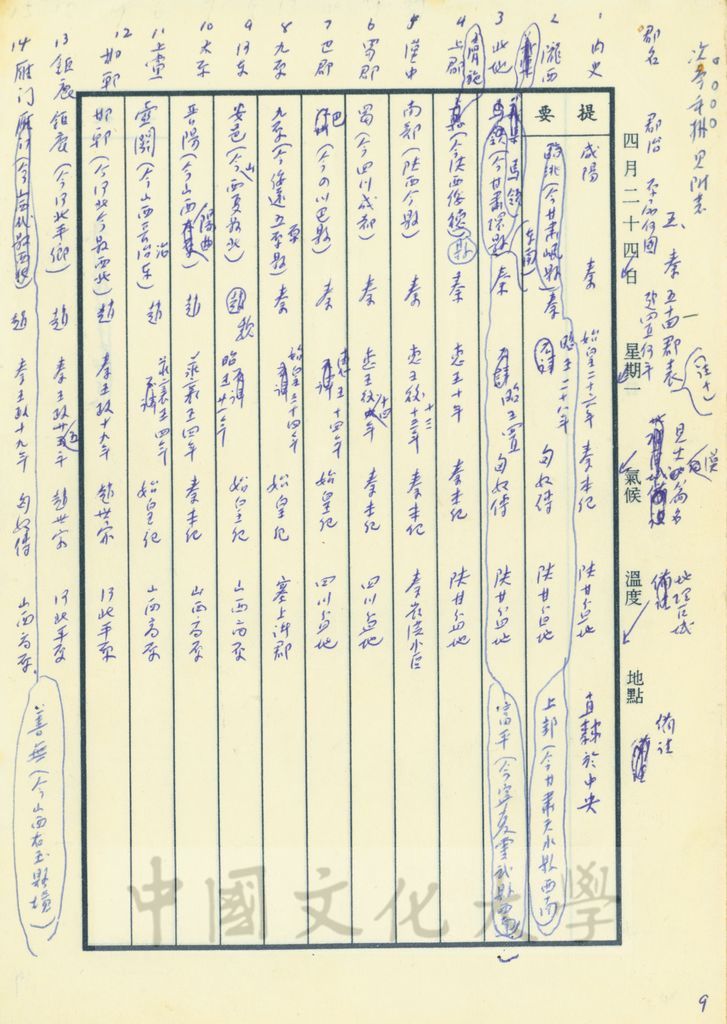 五、秦五十四郡表
郡名 郡治 本為何國 置四五何年 見十四篇名 地理區域 備註
四月二十四日 星期一 氣候 溫度 地點
提要
1 內史 咸陽 秦 始皇二十六年 秦本紀 陝甘台地 直隸於中央
2 隴西 狄道(今甘肅岷縣) 秦 昭王二十八年 匈奴傳 陝甘台地 上邽(今甘肅天水縣西南)
3 北地 馬領(今甘肅環縣) 秦 昭王置 匈奴傳 陝甘台地 富平(今寧夏靈武縣)
4 上郡 膚施(今陝西綏德縣) 秦 惠王十年 秦本紀 陝甘台地
5 漢中 南鄭(陝西今縣) 秦 惠王後十三年 秦本紀 秦嶺漢水區
6 蜀郡 蜀(今四川成都) 秦 惠王後十四年 秦本紀 四川台地
7 巴郡 巴(今四川巴縣) 秦 惠王十四年 始皇紀 四川台地
8 九原 九原(今綏遠五原縣) 秦 始皇三十四年 始皇紀 塞上諸郡
9 河東 安邑(今山西夏縣北) 魏 昭王廿一年 始皇紀 山西高原
10 太原 晉陽(今山西陽曲) 趙 莊襄王四年 秦本紀 山西高原
11 上黨 壺關(今山西長治東) 趙 莊襄王四年 始皇紀 山西高原
12 邯鄲 邯鄲(今河北今縣西北) 趙 秦王政十九年 趙世家 河北平原
13 鉅鹿 鉅鹿(今河北平鄉) 趙 秦王政廿五年 趙世家 河北平原
14 雁門 雁門(今山西代縣西北) 趙 秦王政十九年 匈奴傳 山西高原 善無(今山西右玉縣境)
中國文化大學
9